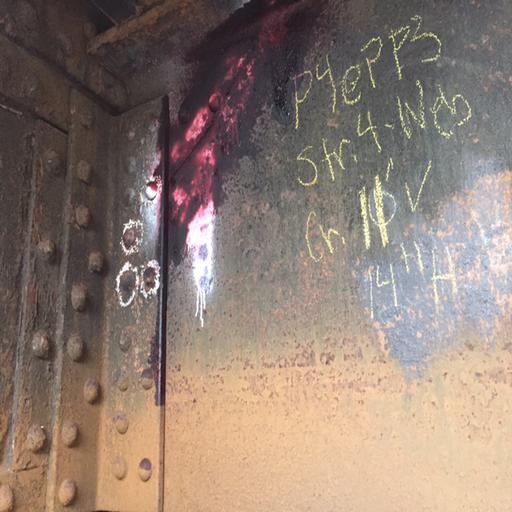 P4@PP3
Str. 4-Web
Cn 16" V
14" H